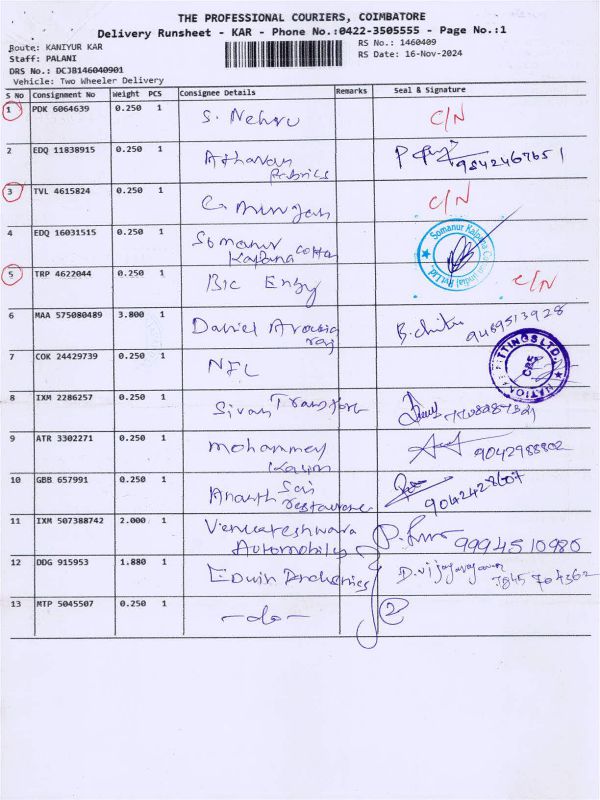 THE PROFESSIONAL COURIERS, COIMBATORE
Delivery Runsheet - KAR - Phone No.:0422-3505555 - Page No.:1
Route: KANIYUR KAR
RS No.: 1460409
Staff: PALANI
RS Date: 16-Nov-2024
DRS No.: DCJB146040901
Vehicle: Two Wheeler Delivery
S No Consignment No Weight PCS Consignee Details Remarks Seal & Signature
1 PDK 6064639 0.250 1 S. Nehru C/N
2 EDQ 11838915 0.250 1 Atharvan P 9842467651
Fabrics
3 TVL 4615824 0.250 1 C/N
4 EDQ 16031515 0.250 1 Somanur
Kalpana Cotton Somanur Kalpana
5 TRP 4622044 0.250 1 Bic Engg C/N
6 MAA 575080489 3.800 1 Daniel Aravind B. Chitra 9489513928
raj
7 COK 24429739 0.250 1 NFL FITTINGS LTD. NATIONAL CBE
8 IXM 2286257 0.250 1 Sivan Transport
9 ATR 3302271 0.250 1 Mohammed 9042988802
10 GBB 657991 0.250 1 Ananth Sai 9042428607
restaurant
11 IXM 507388742 2.000 1 Venkateshwara
Automobiles 9994510980
12 DDG 915953 1.880 1 Edwin D. Vijayaragavan
7845704362
13 MTP 5045507 0.250 1 -do- 2